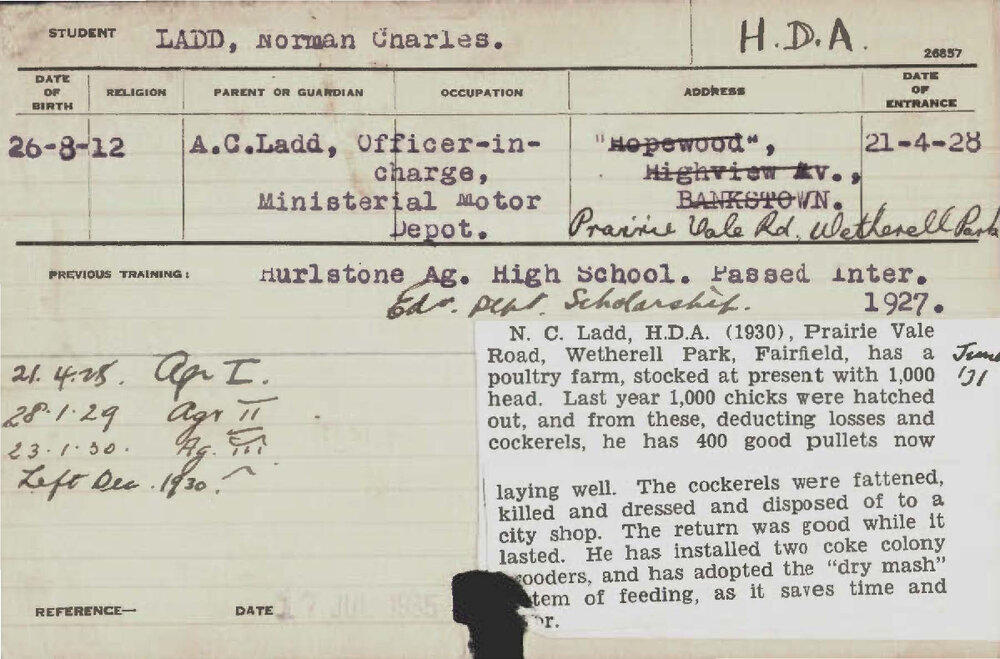 STUDENT LADD, Norman Charles. H.D.A. 26857
DATE OF BIRTH RELIGION PARENT OR GUARDIAN OCCUPATION ADDRESS DATE OF ENTRANCE
26-8-12 A.C.Ladd, Officer-in- "Hopewood", 21-4-28
charge, Highview Av.,
Ministerial Motor BANKSTOWN.
Depot. Prairie Vale Rd, Wetherell Park
PREVIOUS TRAINING: Hurlstone Ag. High School. Passed Inter.
Edn. Dept. Scholarship. 1927.
N. C. Ladd, H.D.A. (1930), Prairie Vale
Road, Wetherell Park, Fairfield, has a
poultry farm, stocked at present with 1,000
head. Last year 1,000 chicks were hatched
out, and from these, deducting losses and
cockerels, he has 400 good pullets now
June
'31
laying well. The cockerels were fattened,
killed and dressed and disposed of to a
city shop. The return was good while it
lasted. He has installed two coke colony
ooders, and has adopted the "dry mash"
tem of feeding, as it saves time and
or.
21.4.28. Agr I.
28.1.29 Agr II
23.1.30. Ag. III
Left Dec. 1930.
REFERENCE— DATE